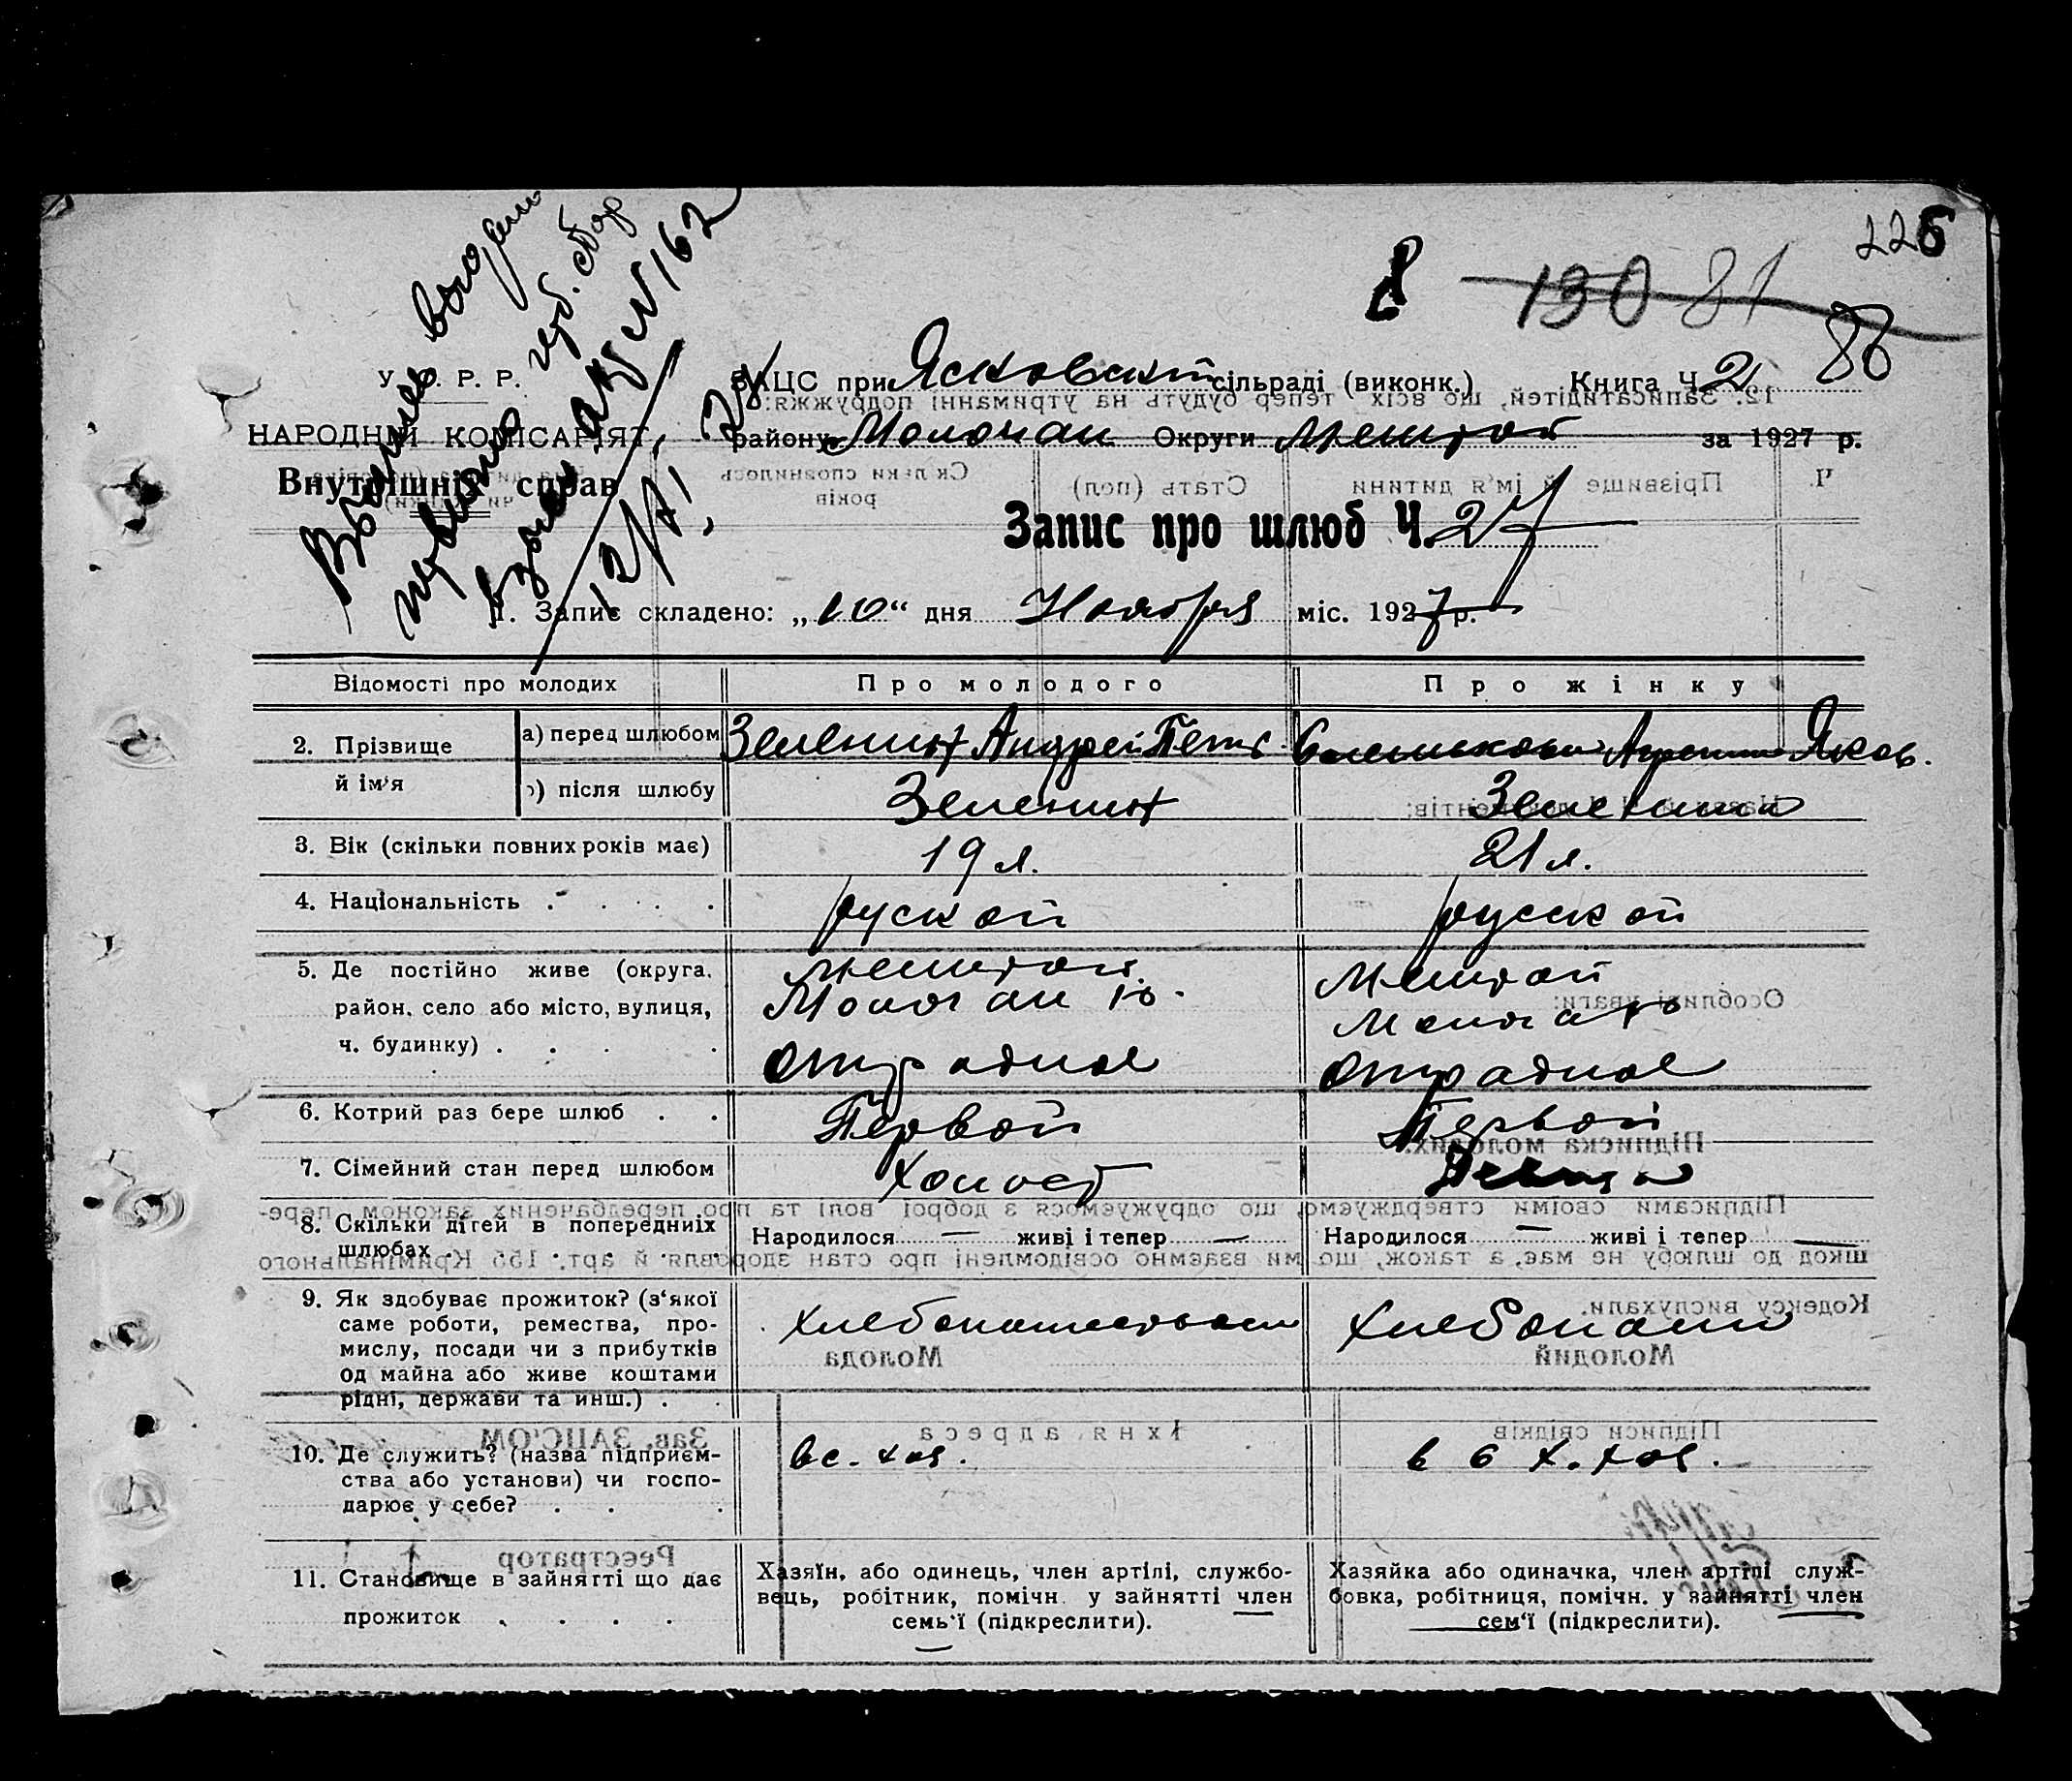 226
130 81
86
У. С. Р. Р.
НАРОДНІЙ КОМІСАРІЯТ
Внутрішніх справ
Выпись выдана
герб. сбор
взыскан
№ 162
ЗАЦС при Ясковскій сільраді (виконк.) Книга Ч. 2
району Молочан Округи Мелитой за 1927 р.
Запис про шлюб Ч. 27
1. Запис складено: „10“ дня Ноября міс. 1927 р.
Відомості про молодих Про молодого Про жінку
2. Прізвище й ім'я
а) перед шлюбом Зеленин Андрей Петр. Яков.
б) після шлюбу Зеленин Зеленина
3. Вік (скільки повних років має) 19 л. 21 л.
4. Національність . . . . руской руской
5. Де постійно живе (округа, Мелитой Мелитой
район, село або місто, вулиця, Молочан р. Молочан р
ч. будинку) . . . . Отрадное Отрадное
6. Котрий раз бере шлюб . . Первой Первой
7. Сімейний стан перед шлюбом Холост Девица
8. Скільки дітей в попередніх шлюбах . . . . Народилося — живі і тепер — Народилося — живі і тепер —
9. Як здобуває прожиток? (з‘якої
саме роботи, ремества, про-
мислу, посади чи з прибутків
од майна або живе коштами
рідні, держави та инш.) . .
Хлебопашеством Хлебопаш
10. Де служить? (назва підприєм-
ства або установи) чи госпо-
дарює у себе? . . .
в с. хоз. в с х. хоз.
11. Становище в зайнятті що дає
прожиток . . . .
Хазяїн, або одинець, член артілі, службо-
вець, робітник, помічн. у зайнятті член
семь‘ї (підкреслити).
Хазяйка або одиначка, член артілі служ-
бовка, робітниця, помічн. у зайнятті член
сем‘ї (підкреслити).